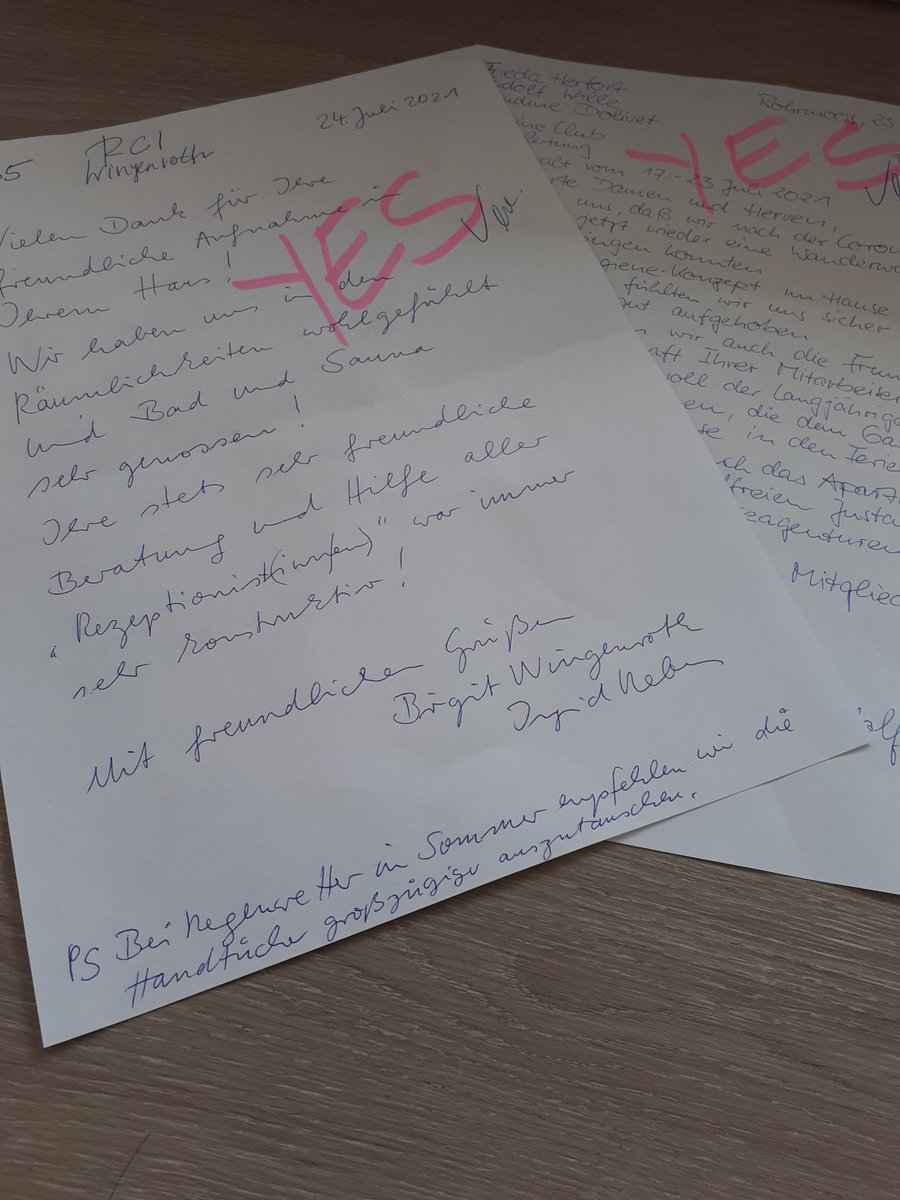 RCI
Wingenroth
24. Juli 2021
Vielen Dank für Ihre
freundliche Aufnahme in
Ihrem Haus!
Wir haben uns in den
Räumlichkeiten wohlgefühlt
und Bad und Sauna
sehr genossen!
Ihre stets sehr freundliche
Beratung und Hilfe aller
„Rezeptionist(innen)" war immer
sehr konstruktiv!
Mit freundlichen Grüßen
Birgit Wingenroth
Ingrid
PS Bei Regenwetter im Sommer empfehlen wir die
Handtücher großzügiger auszutauschen.
YES
Frieda Hertort
Wille
Dolivet
Rohrmoos, 23
Club
vom 17.-23 Juli 2021
Damen und Herren,
uns, daß wir nach der Coron
jetzt wieder eine Wanderwo
konnten
iene-Konzept im Hause
fühlten wir uns sicher
gut aufgehoben.
wir auch die Freun
aft Ihrer Mitarbeiter
voll der langjährige
en, die dem Gä
se in den Ferie
ch das Apart
freien Zusta
eagenturen
Mitglied
YES